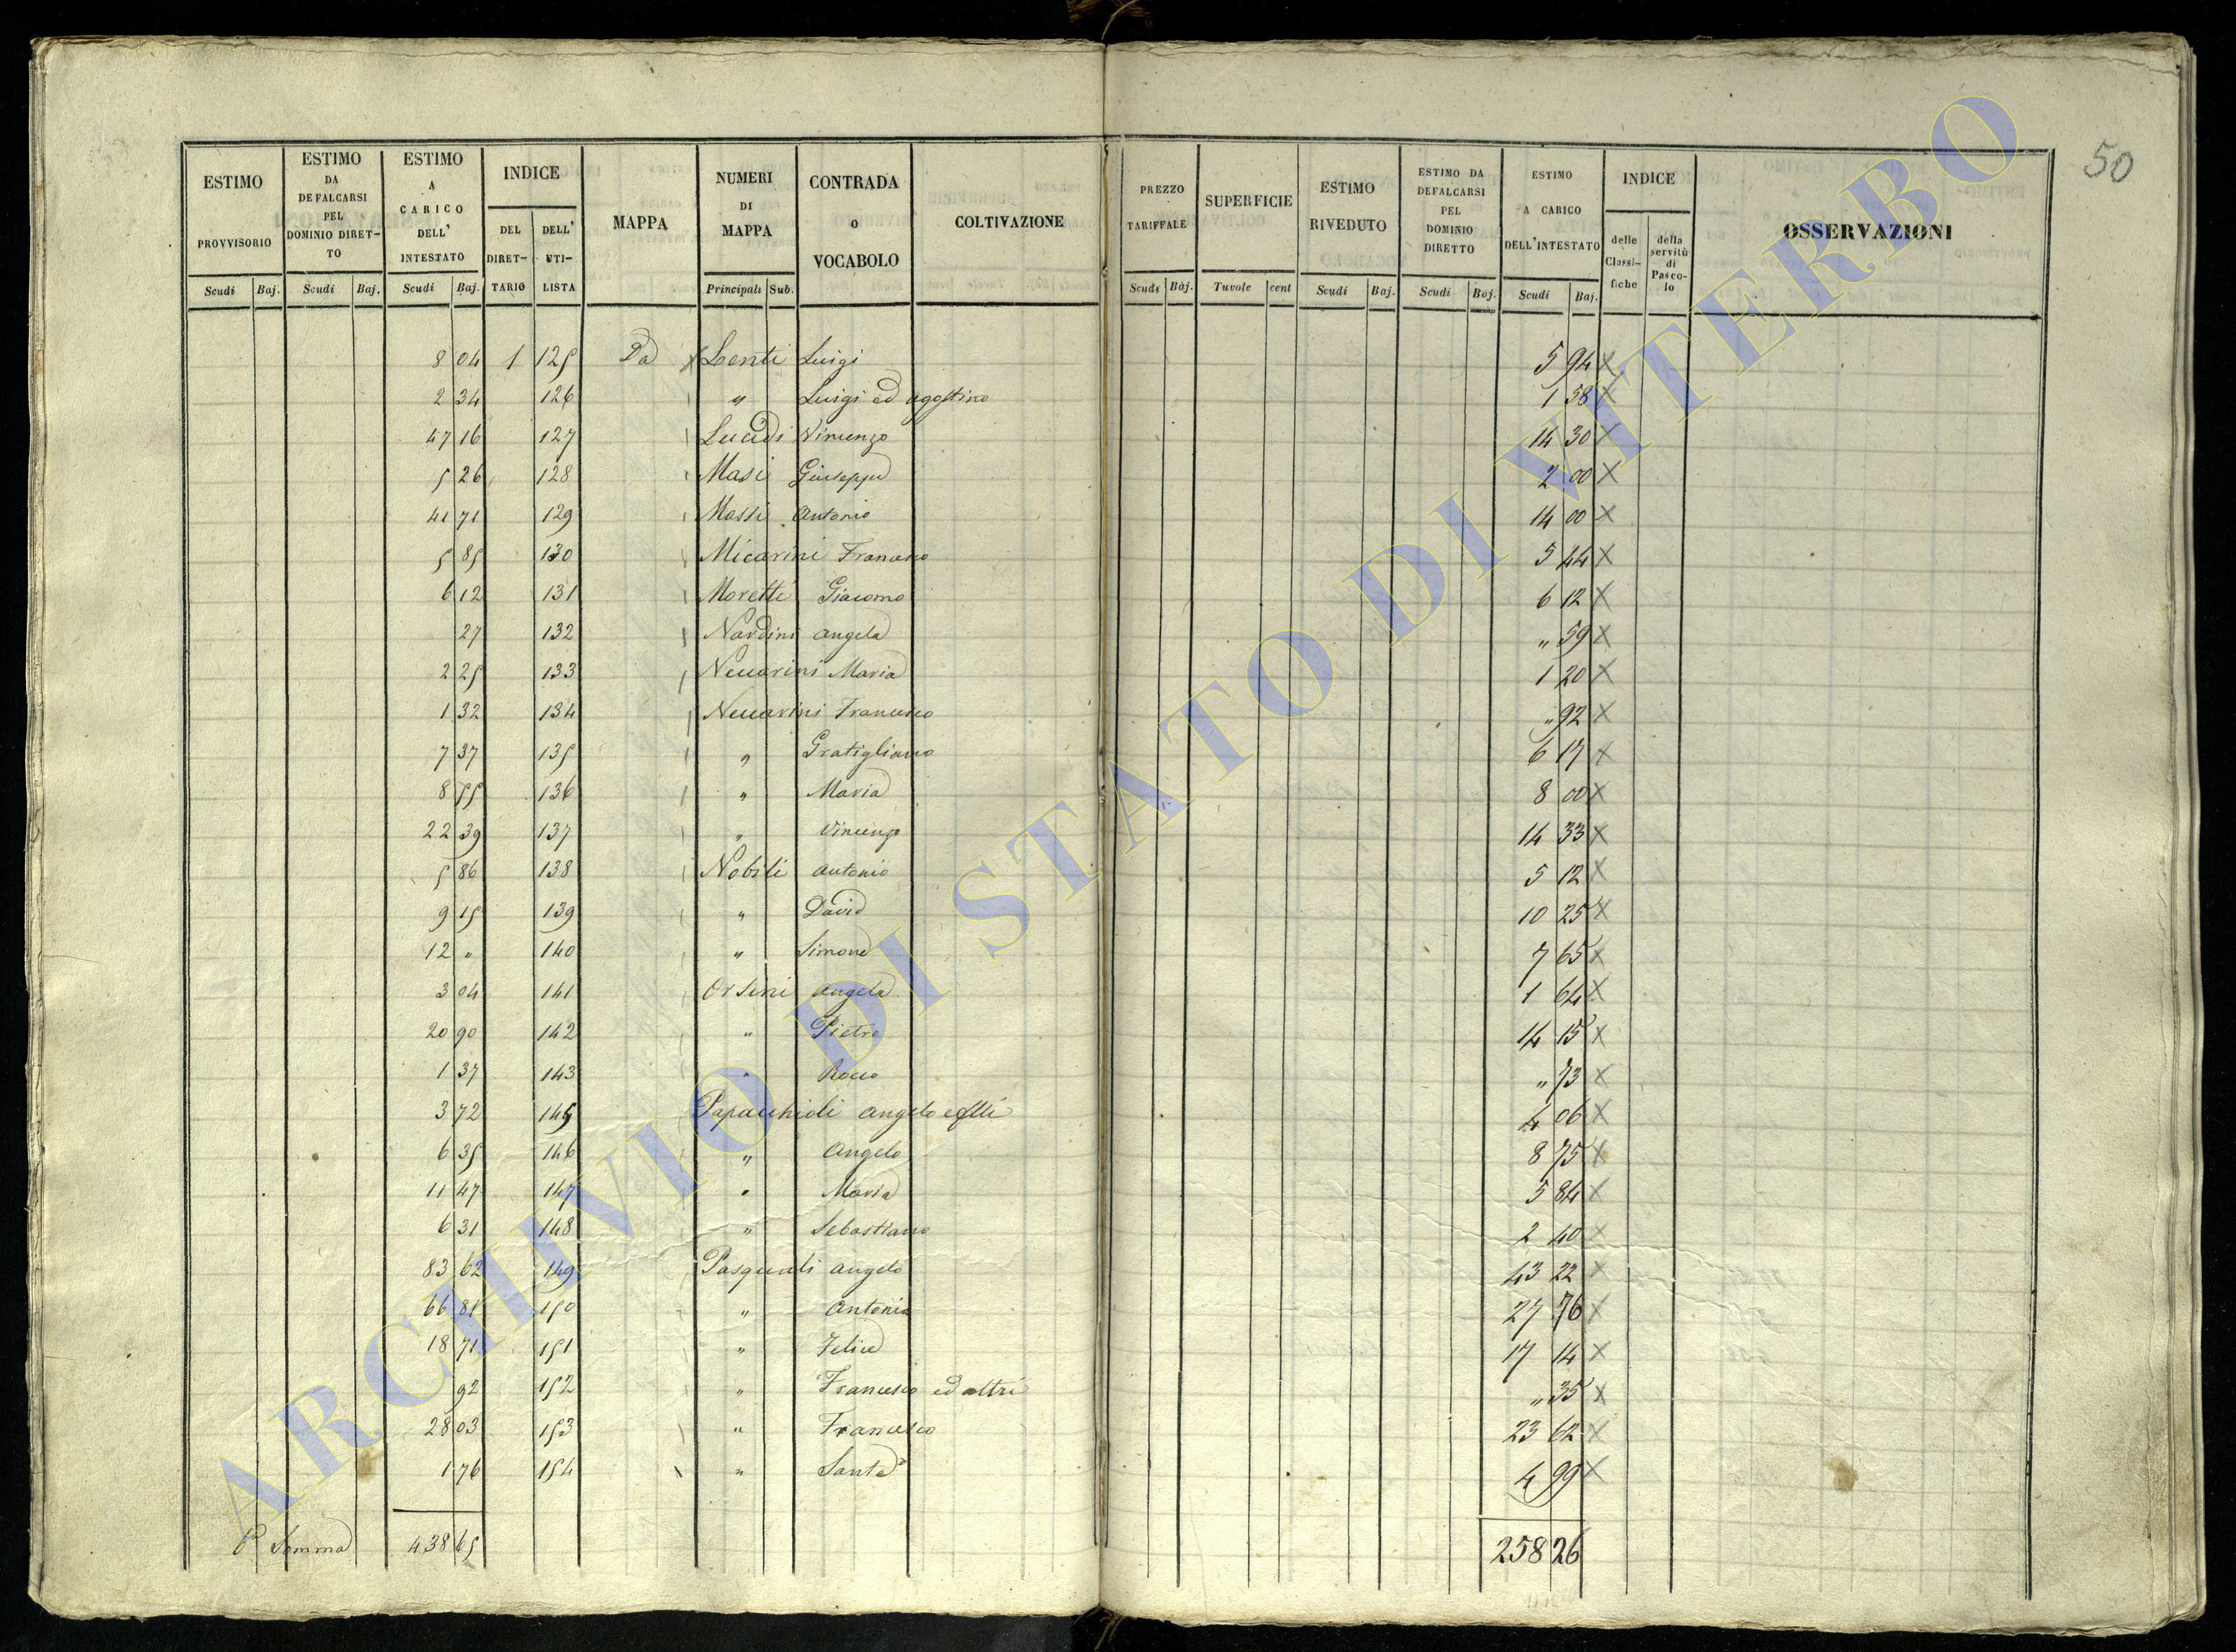 50
ESTIMO PROVVISORIO Scudi Baj.
ESTIMO DA DEFALCARSI PEL DOMINIO DIRET-TO Scudi Baj.
ESTIMO A CARICO DELL' INTESTATO Scudi Baj.
INDICE DEL DIRET-TARIO DELL' UTI-LISTA
MAPPA
NUMERI DI MAPPA Principali Sub.
CONTRADA o VOCABOLO
COLTIVAZIONE
PREZZO TARIFFALE Scudi Baj.
SUPERFICIE Tavole cent
ESTIMO RIVEDUTO Scudi Baj.
ESTIMO DA DEFALCARSI PEL DOMINIO DIRETTO Scudi Baj.
ESTIMO A CARICO DELL'INTESTATO Scudi Baj.
INDICE delle Classi-fiche della servitù di Pasco-lo
OSSERVAZIONI
8 04 1 125 Da x Lenti Luigi 5 94 x
2 34 126 " Luigi ed agostino 1 58 x
47 16 127 Lucidi Vincenzo 14 30 x
5 26 128 Masi Giuseppe 2 00 x
41 71 129 Massi Antonio 14 00 x
5 85 130 Micarini Francesco 5 44 x
6 12 131 Moretti Giacomo 6 12 x
27 132 Nardini angela " 59 x
2 25 133 Neccarini Maria 1 20 x
1 32 134 Neccarini Francesco " 92 x
7 37 135 " Gratigliano 6 17 x
8 55 136 " Maria 8 00 x
22 39 137 " Vincenzo 14 33 x
5 86 138 Nobili antonio 5 12 x
9 15 139 " David 10 25 x
12 " 140 " Simone 7 65 x
3 04 141 Orsini angela 1 64 x
20 90 142 " Pietro 14 15 x
1 37 143 " Rocco " 73 x
3 72 145 Papacchioli angelo e flli 4 06 x
6 35 146 " Angelo 8 75 x
11 47 147 " Maria 5 84 x
6 31 148 " Sebastiano 2 40 x
83 62 149 Pasquali angelo 43 22 x
66 81 150 " Antonio 27 76 x
18 71 151 " Felice 17 14 x
92 152 " Francesco ed altri " 35 x
28 03 153 " Francesco 23 62 x
1 76 154 " Sante 4 99 x
Somma 438 65 258 26
ARCHIVIO DI STATO DI VITERBO